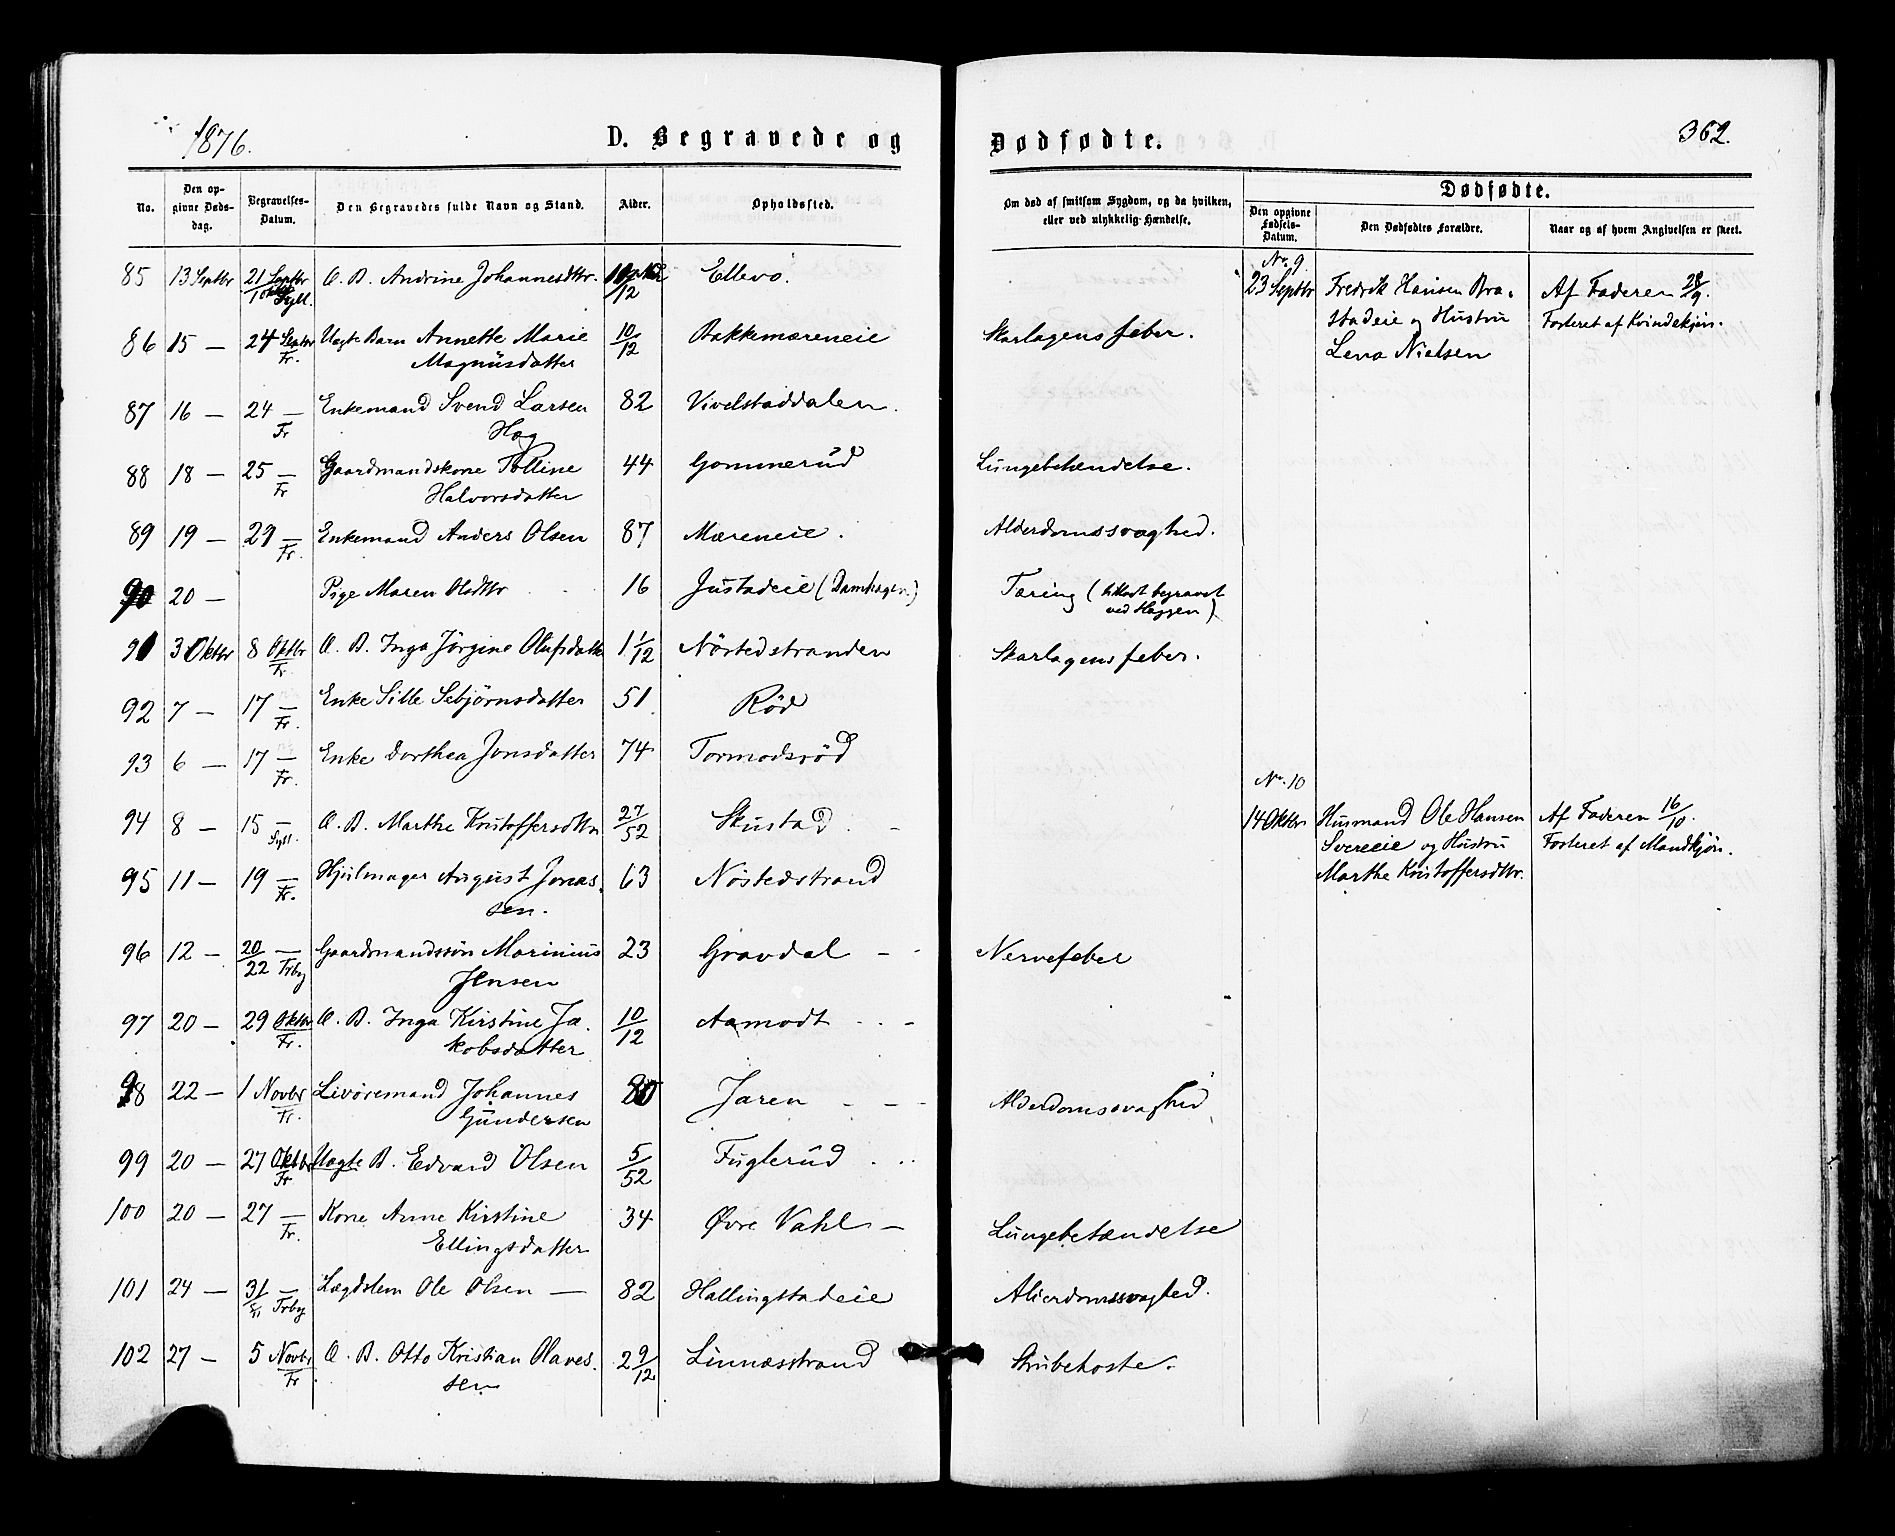 1876.
D. Begravede og
No.
Den op-
givne Døds-
dag.
Begravelses-
Datum.
Den Begravedes fulde Navn og Stand.
Alder.
Opholdssted.
85 13 Septbr 21 Septbr Æ. B. Andrine Johannesdtr. Ellevo.
86 15 — 24 Septbr Uægte Barn Annette Marie 10/12 Bakkemæreneie
Fr. Magnüsdatter
87 16 — 24 — Enkemand Svend Larsen 82 Vivelstaddalen.
Fr Hog
88 18 — 25 — Gaardmandskone Tolline 44 Gommerüd
Fr Halvorsdatter
89 19 — 29 — Enkemand Anders Olsen 87 Mæreneie.
Fr.
90 20 — Pige Maren Olsdtr 16 Justadeie (Damhagen)
91 3 Oktbr 8 Oktbr Æ. B. Inga Jörgine Olufsdattr 1 1/12 Nöstedstranden
Fr.
92 7 — 17 — Enke Sille Sebjørnsdatter 51 Rød
Fr.
93 6 — 17 — Enke Dorthea Jonsdatter 74 Tormodsrød
Fr.
94 8 — 15 — Æ. B. Marthe Kristoffersdtr 27/52 Skustad
Syll.
95 11 — 19 — Hjulmager August Jonas- 63 Nöstedstrand
Fr. sen.
96 12 — 20/22 — Gaardmandssön Marinius 23 Gravdal —
Trbg Jensen
97 20 — 29 Oktbr Æ. B. Inga Kirstine Ja- 10/12 Aamodt
Fr. kobsdatter
98 22 — 1 Novbr Livøremand Johannes 80 Jaren
Fr. Gündersen
99 20 — 27 Oktbr Uægte B. Edvard Olsen 5/52 Fuglerüd
Fr
100 20 — 27 — Kone Anne Kirstine 34 Øvre Vahl —
Fr. Ellingsdatter
101 24 — 31 — Lægdslem Ole Olsen — 82 Hallingstadeie
Trbg
102 27 — 5 Novbr Æ. B. Otto Kristian Olaves- 2 9/12 Linnæsstrand
Fr sen
Dødfødte.
362.
Om død af smitsom Sygdom, og da hvilken,
eller ved ulykkelig Hændelse.
Dødfødte.
Den opgivne
Fødsels-
Datum.
Den Dødfødtes Forældre.
Naar og af hvem Angivelsen er skeet.
No. 9
23 Septbr Fredrik Hansen Bra- Af Faderen 28/9.
stadeie og Hustru Forteret af Kvindekjön.
Skarlagensfeber. Lena Nielsen
Lungebetændelse.
Alderdomssvaghed.
Tæring (tillagt begravet
ved Haggen)
Skarlagensfeber.
No. 10
14 Oktbr Husmand Ole Hansen Af Faderen 16/10.
Svereeie og Hustru Forteret af Mandkjön.
Marthe Kristoffersdtr.
Nervefeber
Alderdomssvaghed
Lungebetændelse
Alderdomssvaghed.
Strubehoste.